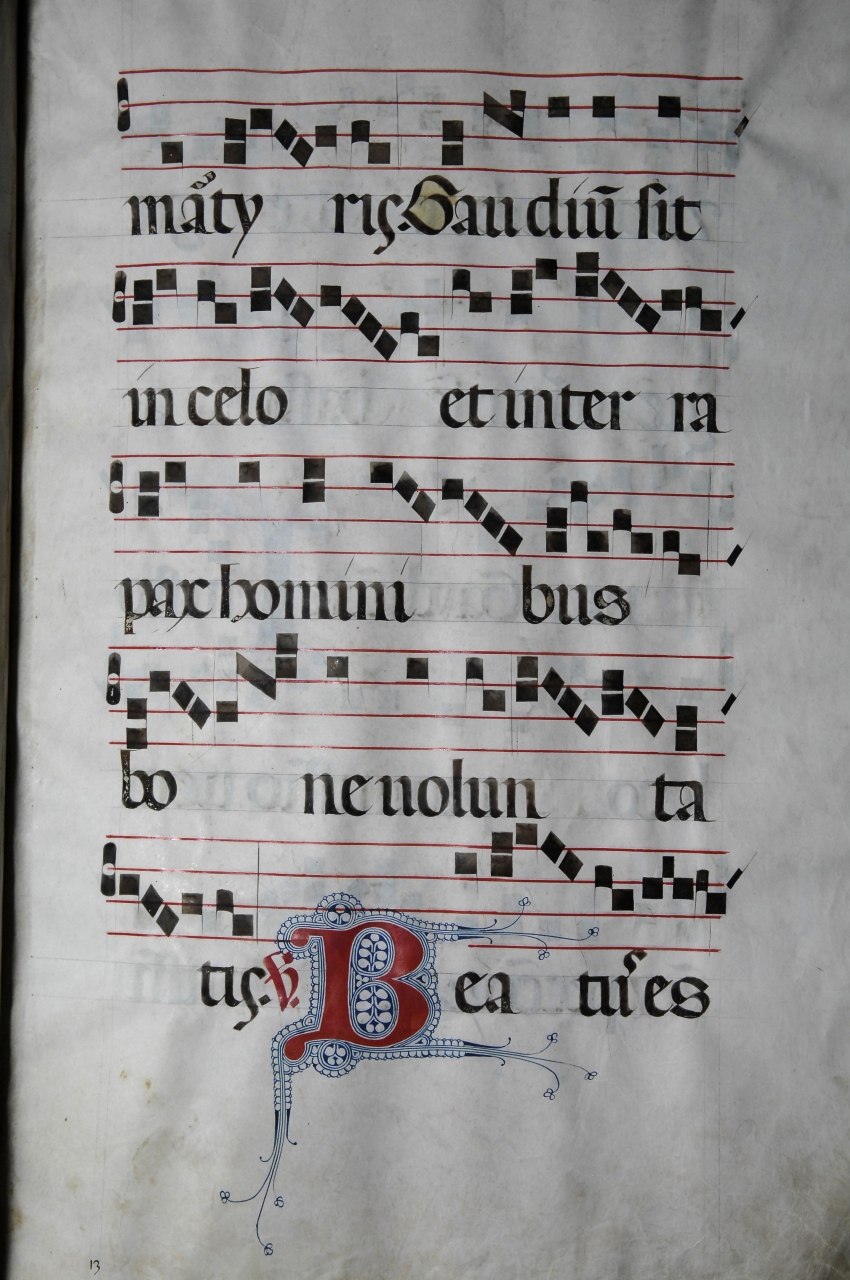 mãty ris. Gaudiũ sit
in celo et in ter ra
pax homini bus
bo ne uolun ta
tis. V. Bea tus es
13